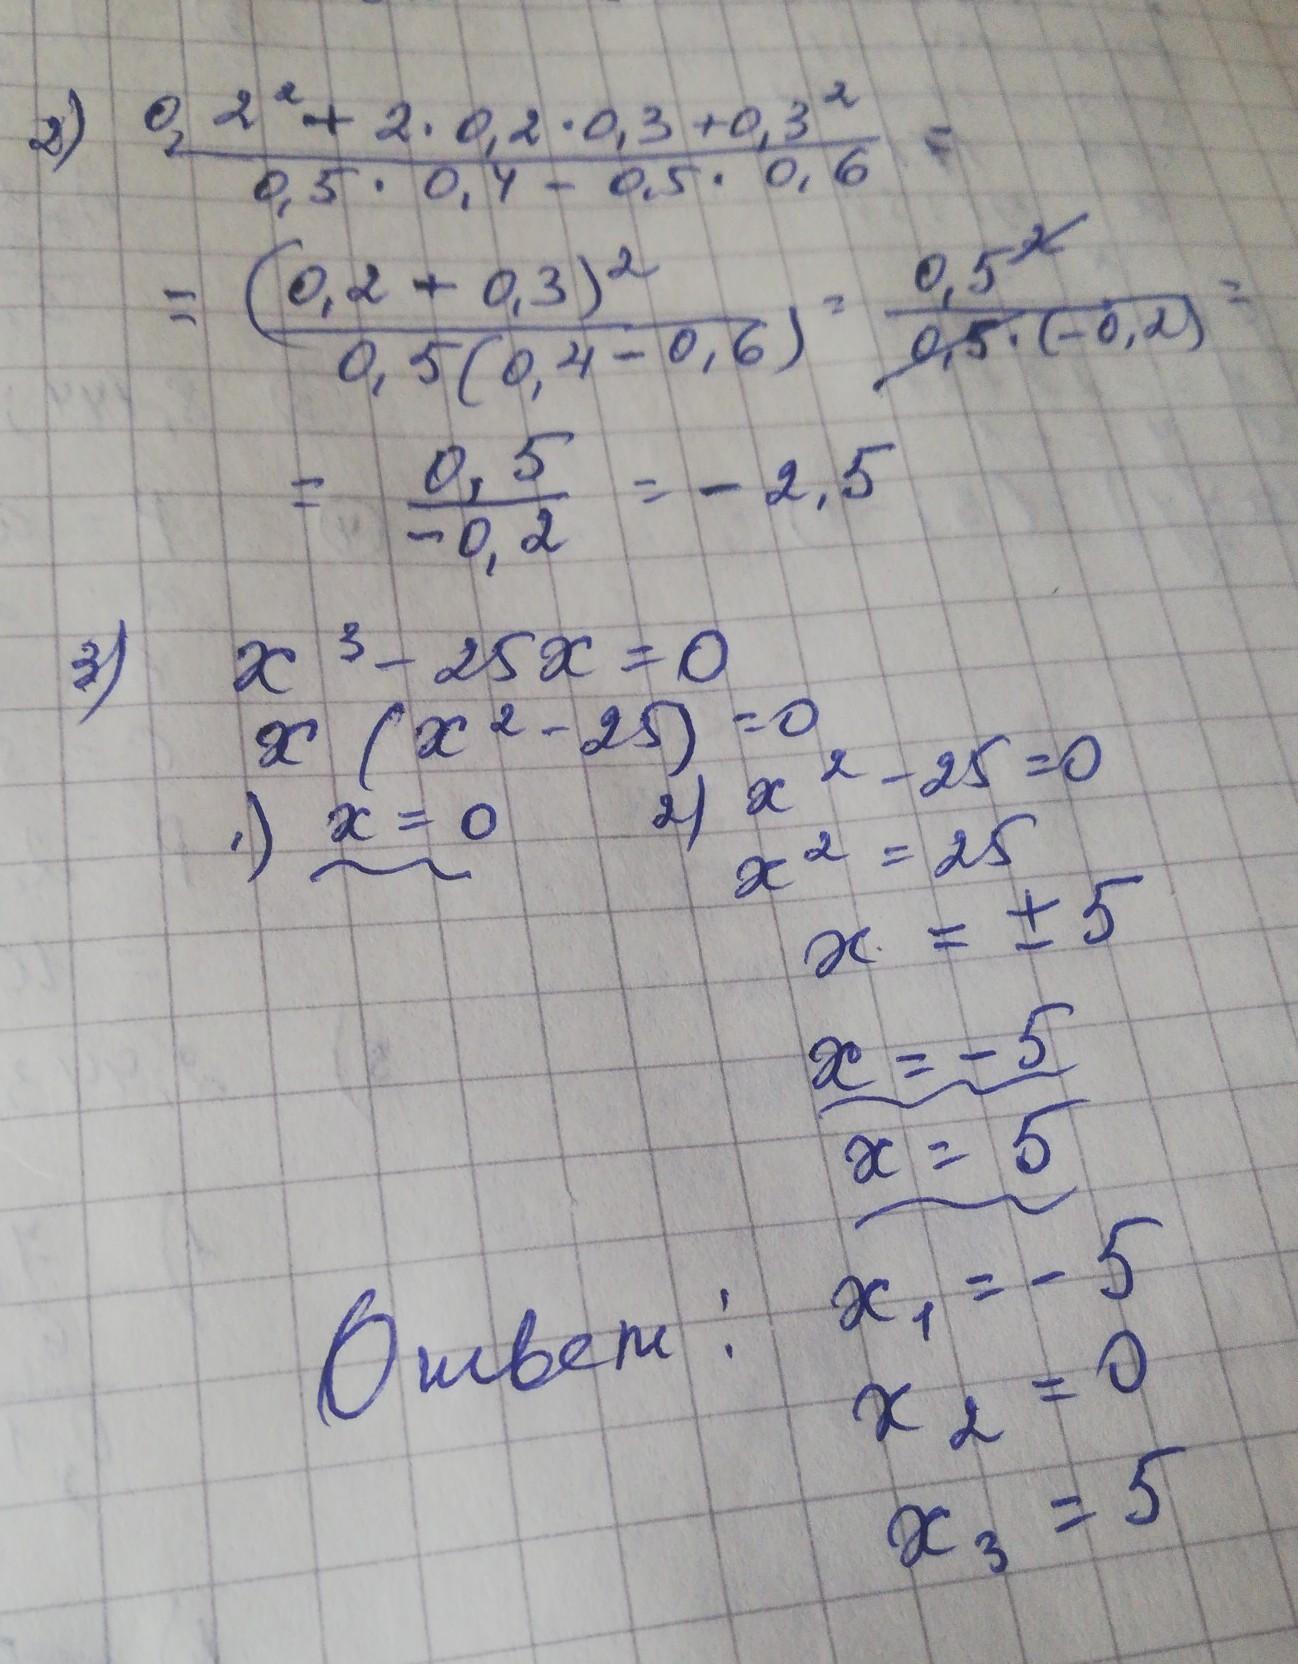 2) (0,2² + 2·0,2·0,3+0,3²)/(0,5·0,4 - 0,5·0,6) =
= (0,2 + 0,3)²/(0,5(0,4-0,6)) = 0,5²/(0,5·(-0,2)) =
= 0,5/(-0,2) = - 2,5
3) x³ - 25x = 0
x (x² - 25) = 0
1) x = 0 2) x² - 25 = 0
x² = 25
x = ± 5
x = - 5
x = 5
Ответ: x₁ = - 5
x₂ = 0
x₃ = 5